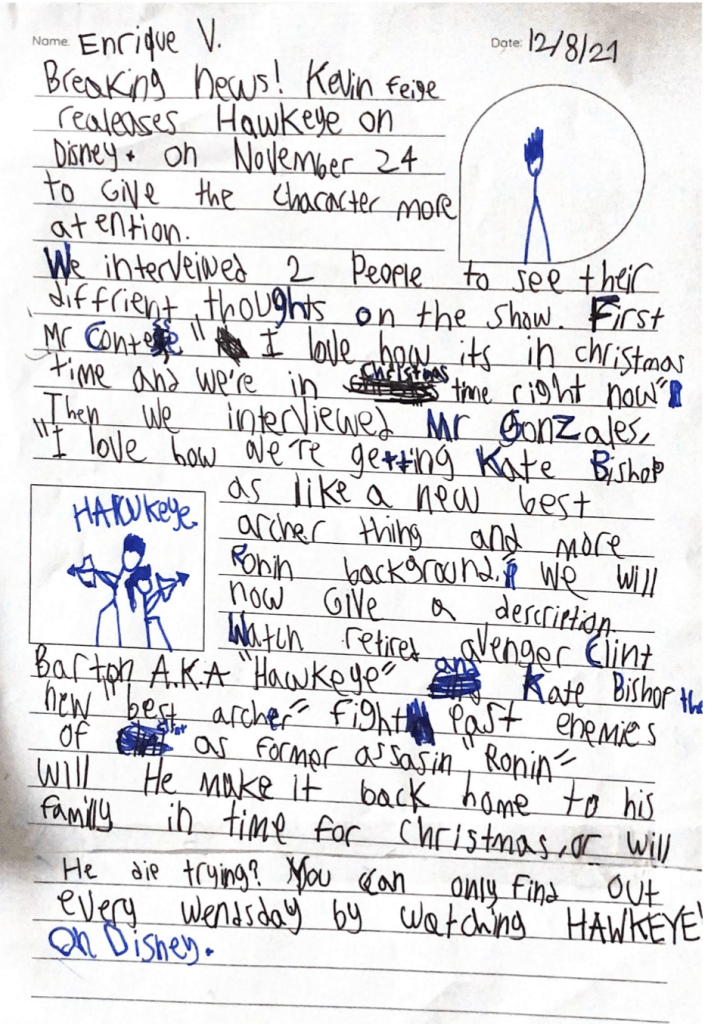 Name: Enrique V.
Date: 12/8/21
Breaking news! Kevin feige
realeases Hawkeye on
Disney+ on November 24
to Give the character more
atention.
We interveiwed 2 People to see their
diffrient thoughts on the show. First
Mr Conte " I love how its in christmas
time and we're in christmas time right now"
Then we interviewed Mr Gonzales,
"I love how we're getting Kate Bishop
as like a new best
archer thing and more
Ronin background." We will
now Give a description
Watch retired avenger Clint
Barton A.K.A "Hawkeye" and Kate Bishop the
new "best archer" fight past enemies
of Clint as former assasin "Ronin"
will He make it back home to his
family in time for christmas, or will
He die trying? You can only find out
every wensday by watching HAWKEYE
On Disney+
HAWKeye